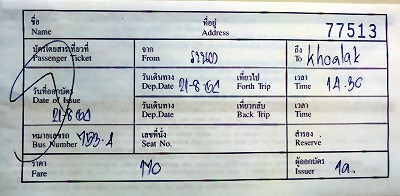 ชื่อ ที่อยู่ 77513
Name Address
บัตรโดยสารเที่ยวที่ จาก ระนอง ถึง
Passenger Ticket From To Khoalak
วันที่ออกบัตร วันเดินทาง 21-8-60 เที่ยวไป เวลา 14.30
Date of Issue Dep.Date Forth Trip Time
21-8-60 วันเดินทาง เที่ยวกลับ เวลา
Dep.Date Back Trip Time
หมายเลขรถ 753-1 เลขที่นั่ง สำรอง
Bus Number Seat No. Reserve
ราคา 170 ผู้ออกบัตร
Fare Issuer